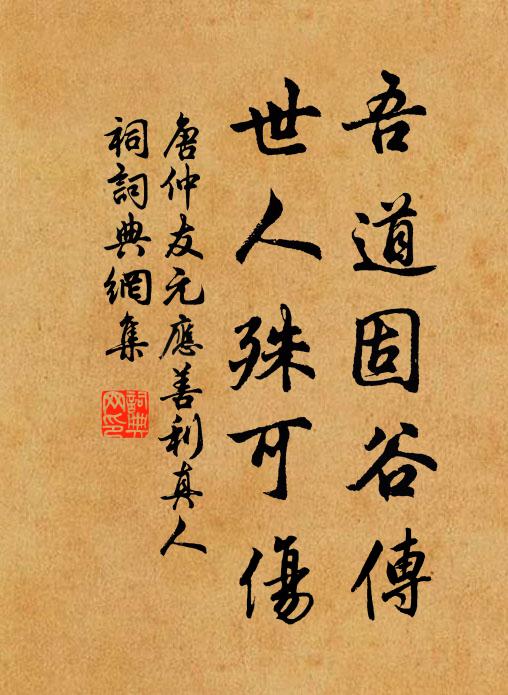 吾道固谷傳
世人殊可傷
唐仲友元應善利真人
祠詞典網集
詞典
网印